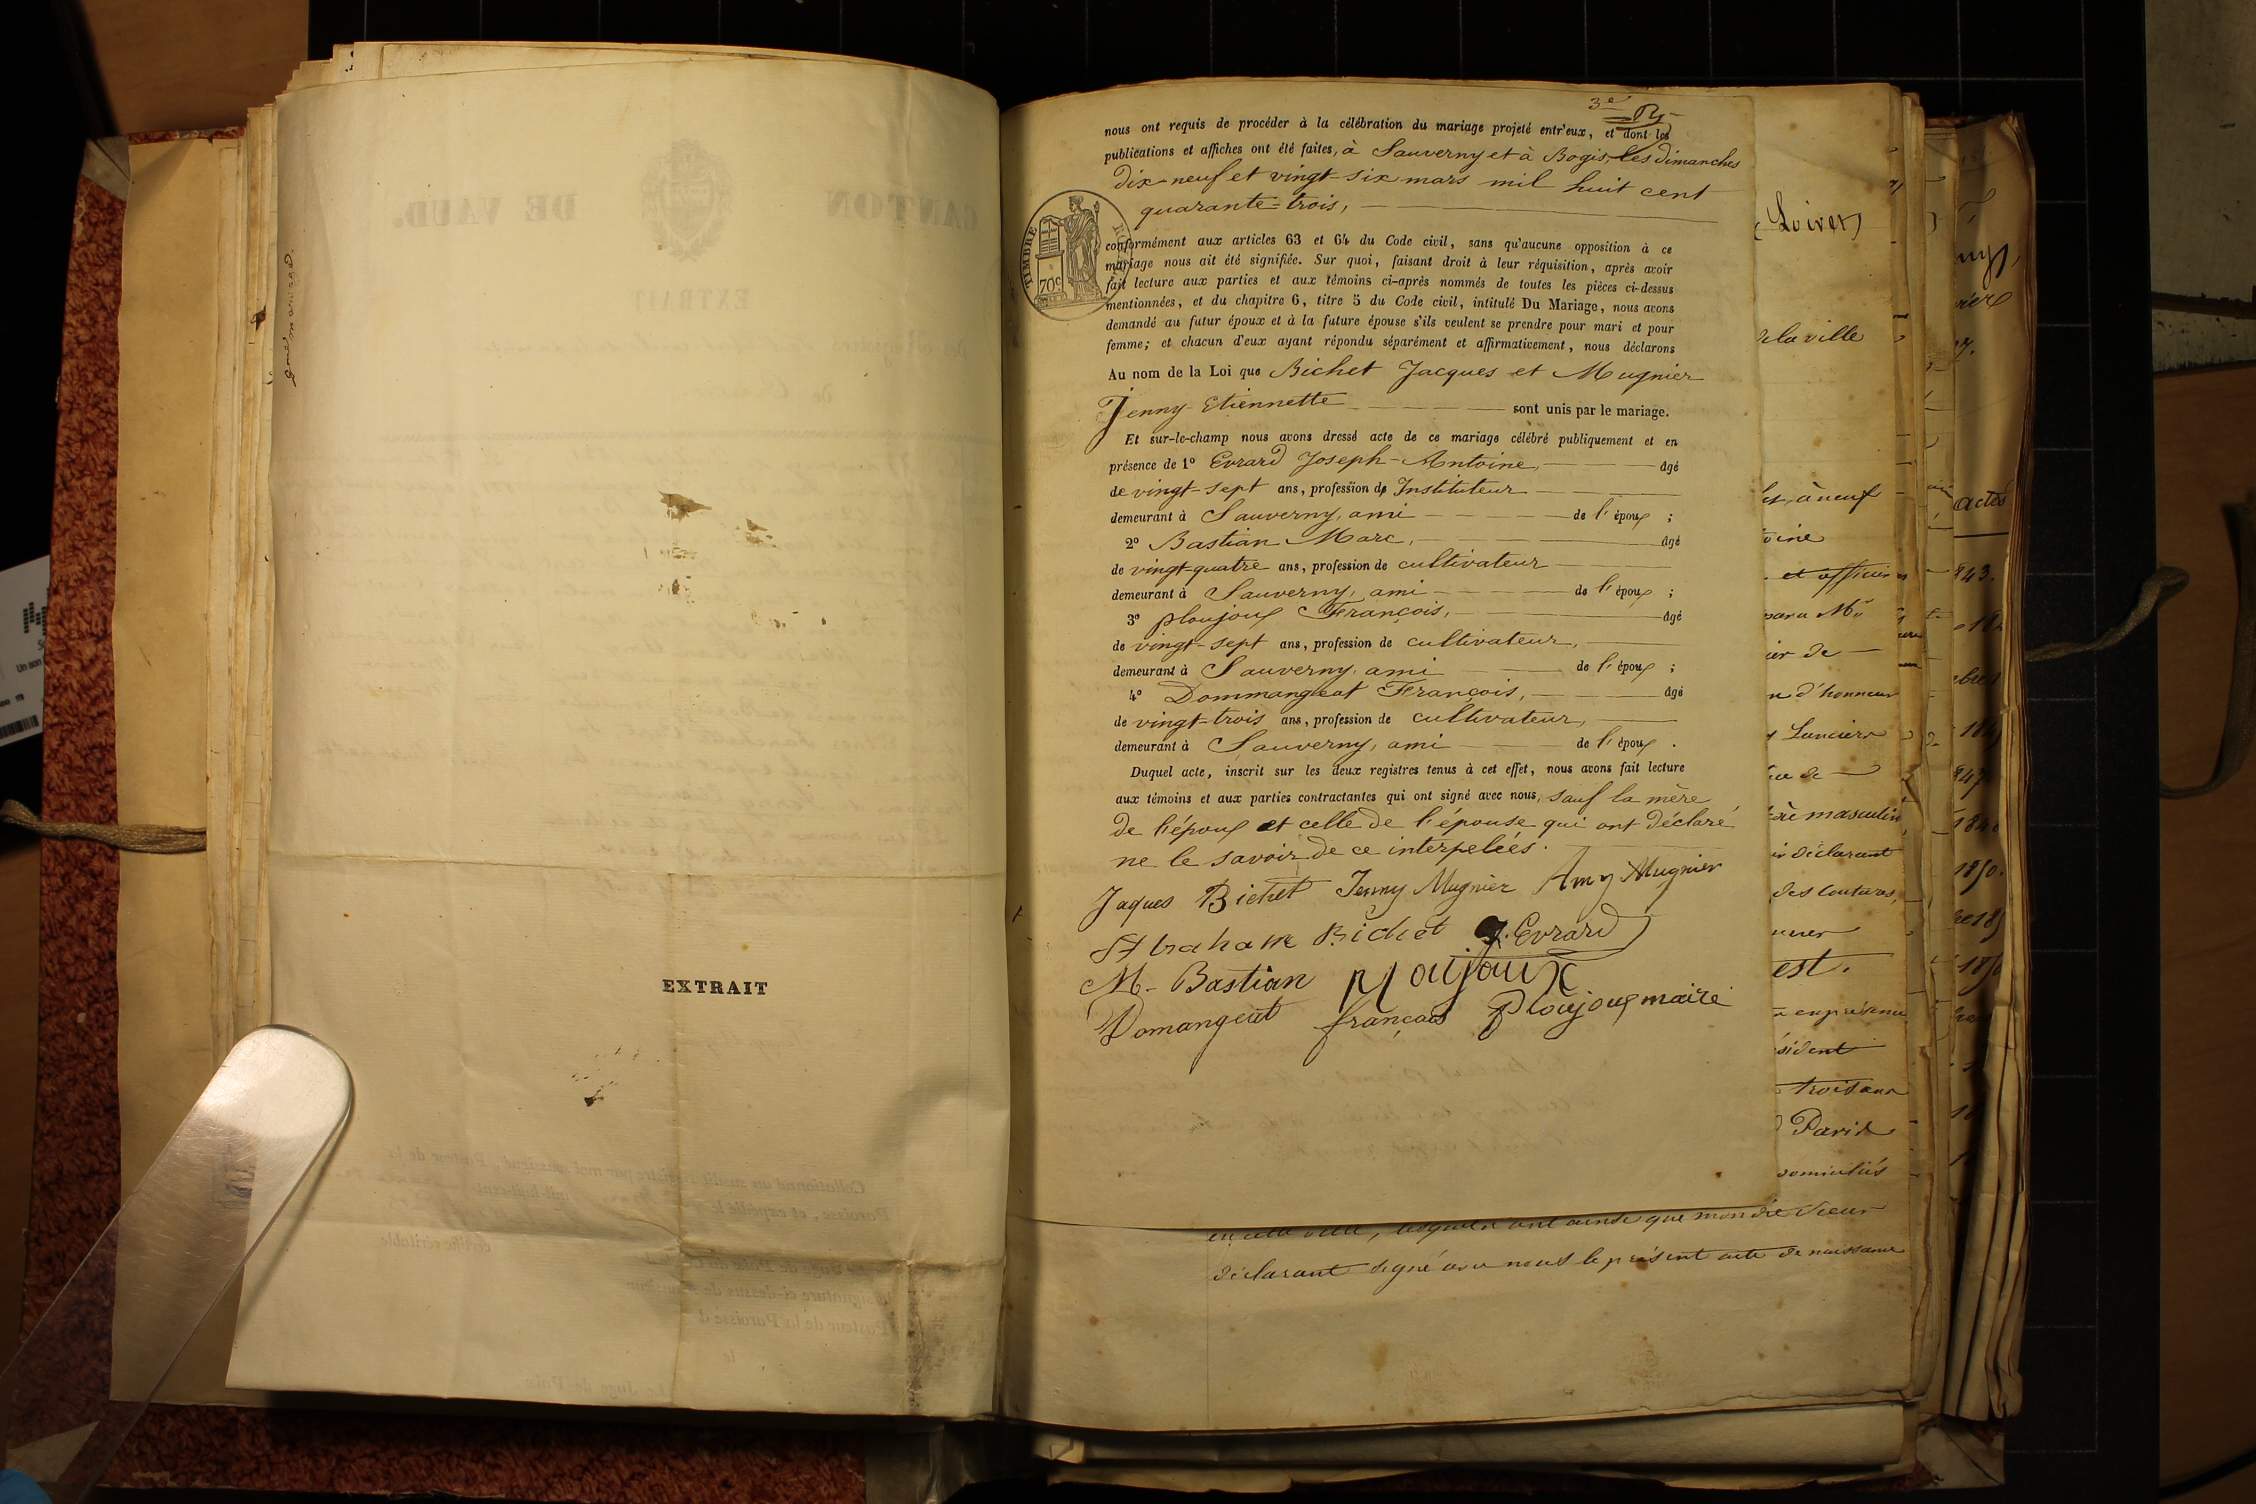 EXTRAIT
3e
nous ont requis de procéder à la célébration du mariage projeté entr'eux, et dont les
publications et affiches ont été faites, à Sauverny et à Bogis, les dimanches
dix-neuf et vingt-six mars mil huit cent
quarante-trois,
TIMBRE
70c
conformément aux articles 63 et 64 du Code civil, sans qu'aucune opposition à ce
mariage nous ait été signifiée. Sur quoi, faisant droit à leur réquisition, après avoir
fait lecture aux parties et aux témoins ci-après nommés de toutes les pièces ci-dessus
mentionnées, et du chapitre 6, titre 5 du Code civil, intitulé Du Mariage, nous avons
demandé au futur époux et à la future épouse s'ils veulent se prendre pour mari et pour
femme; et chacun d'eux ayant répondu séparément et affirmativement, nous déclarons
Au nom de la Loi que Bichet Jacques et Mugnier
Jenny Etiennette sont unis par le mariage.
Et sur-le-champ nous avons dressé acte de ce mariage célébré publiquement et en
présence de 1º Evrard Joseph-Antoine, âgé
de vingt-sept ans, profession de Instituteur
demeurant à Sauverny, ami de l'époux ;
2º Bastian Marc, âgé
de vingt-quatre ans, profession de cultivateur
demeurant à Sauverny, ami de l'époux ;
3º Ploujoux François, âgé
de vingt-sept ans, profession de cultivateur,
demeurant à Sauverny, ami de l'époux ;
4º Dommangeat François, âgé
de vingt-trois ans, profession de cultivateur,
demeurant à Sauverny, ami de l'époux .
Duquel acte, inscrit sur les deux registres tenus à cet effet, nous avons fait lecture
aux témoins et aux parties contractantes qui ont signé avec nous, sauf la mère
de l'époux et celle de l'épouse qui ont déclaré
ne le savoir de ce interpelées.
Jaques Bichet Jenny Mugnier Amy Mugnier
Abraham Bichet J. Evrard
M. Bastian Ploujoux
Domangeat françois Ploujoux maire
la ville
et officier
d'honneur
Lanciers
masculin
déclarant
des Coutures,
est.
trois ans
Paris
domiciliés
ont ainsi que mon dit Sieur
déclarant signé avec nous le présent acte de naissance
actes